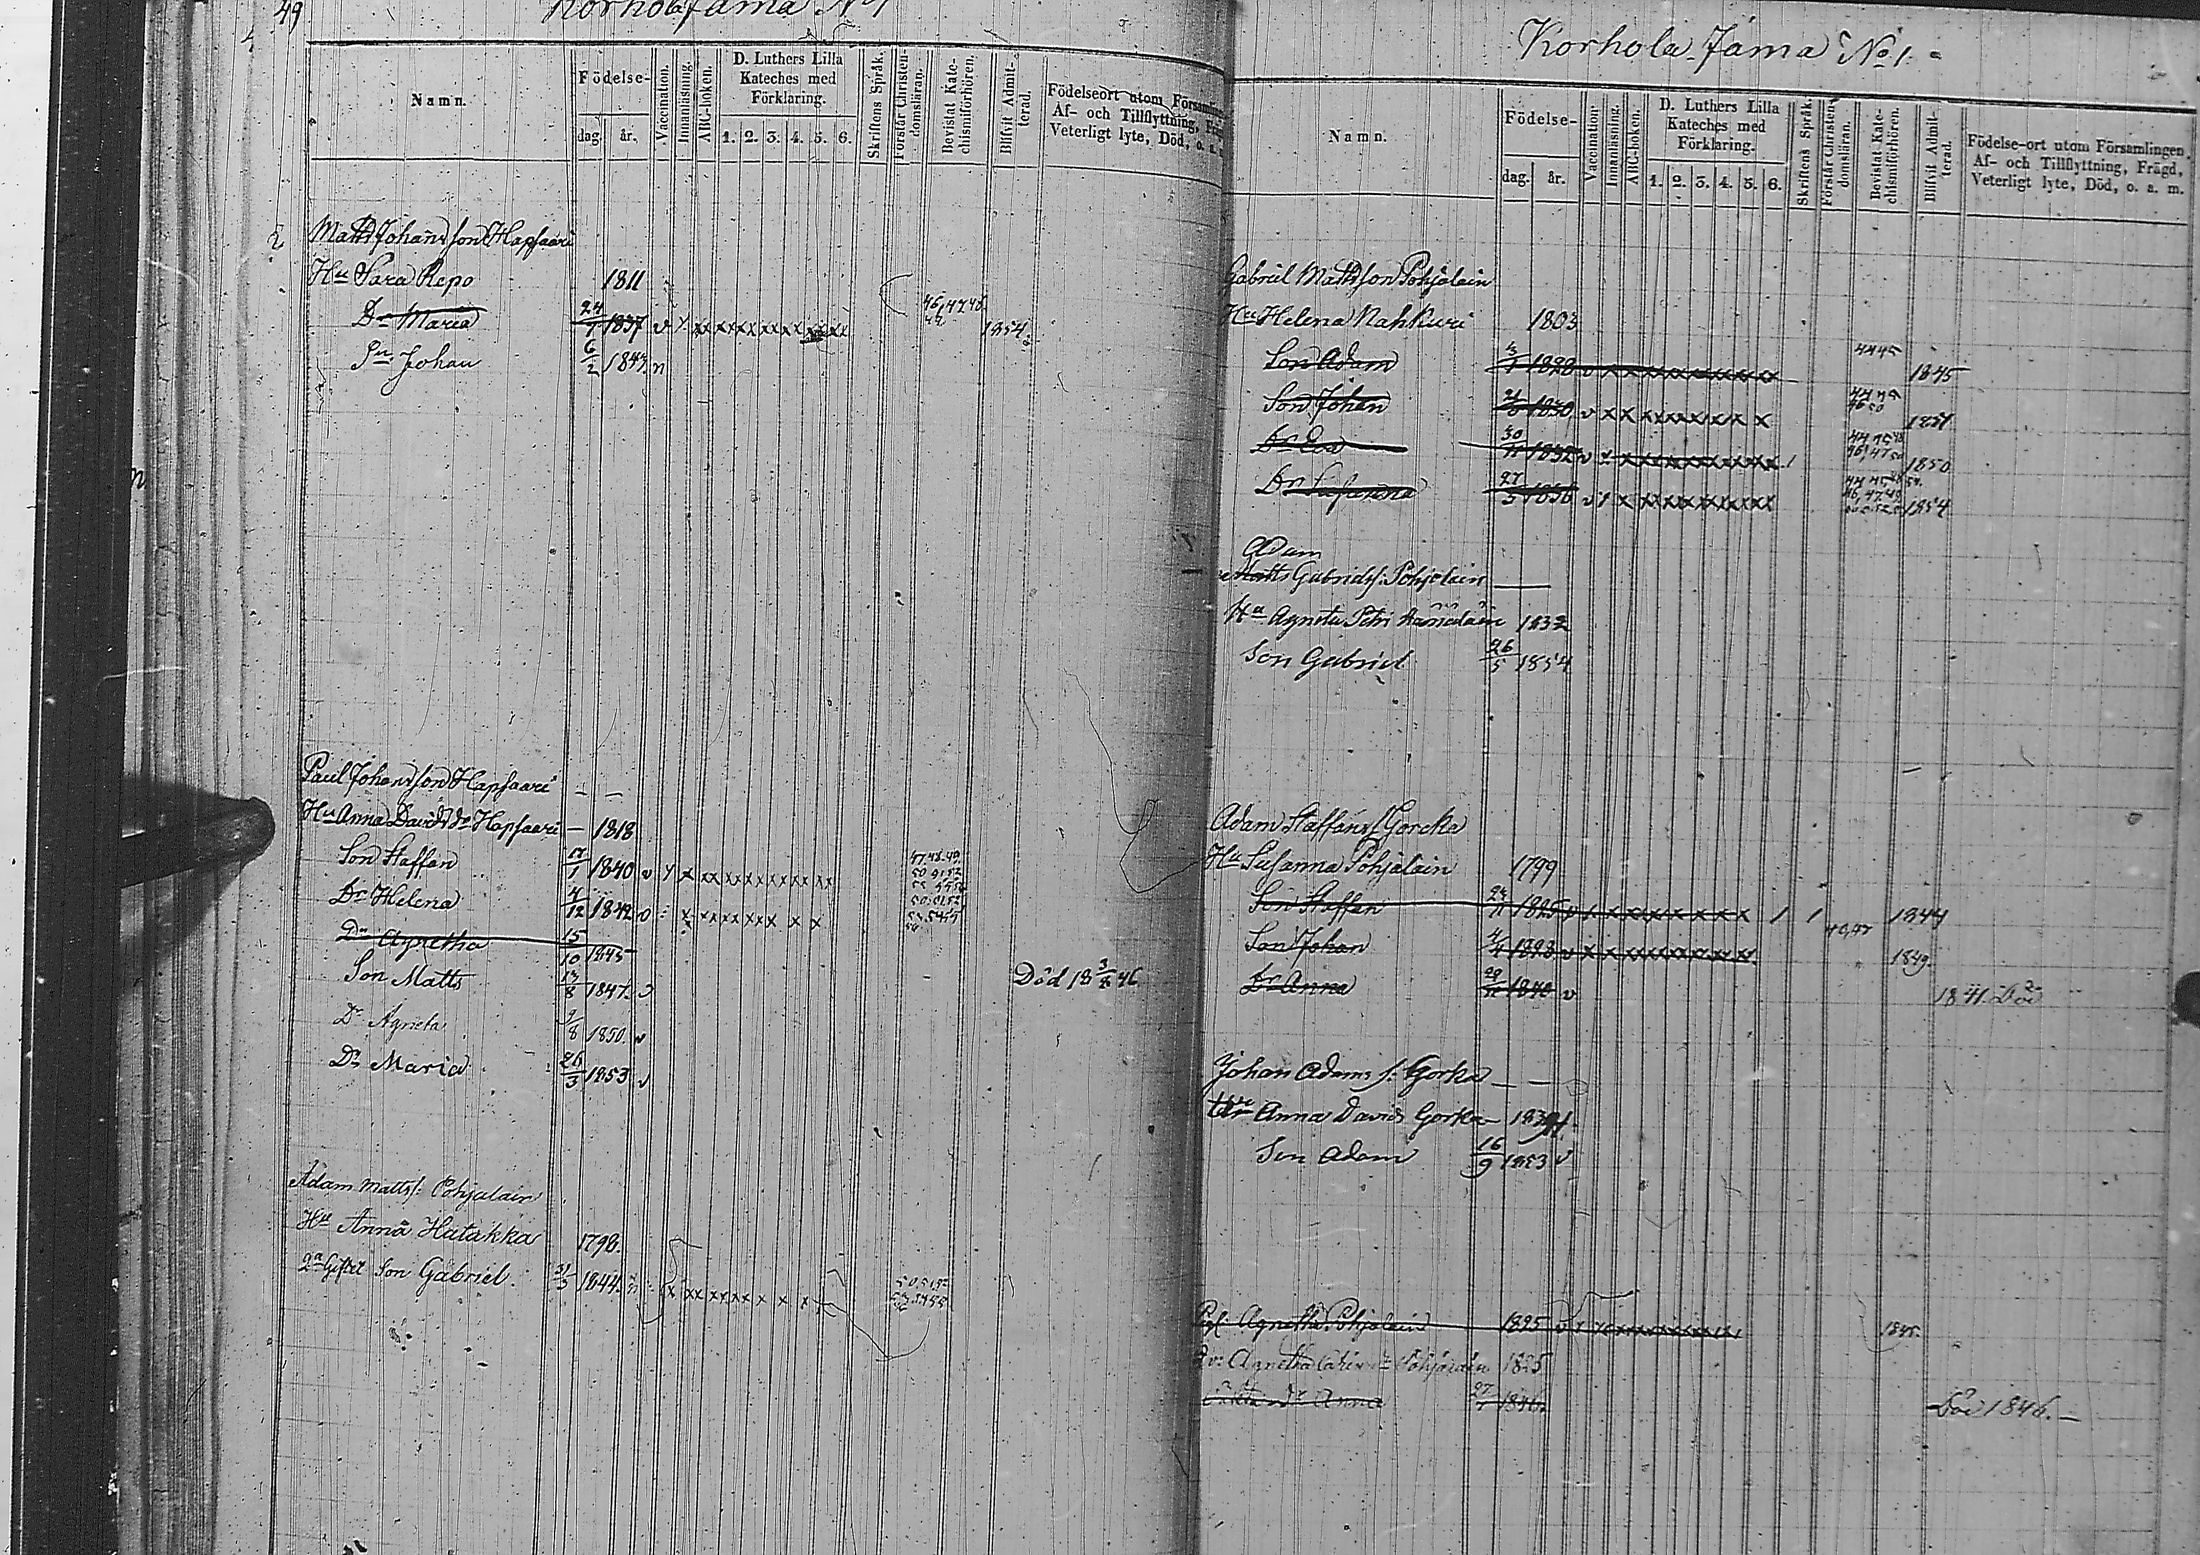 49
Korhola Jama No 1
Namn.
Födelse-
dag. år.
Vaccination.
Innanläsning.
ABC-boken.
D. Luthers Lilla
Kateches med
Förklaring.
1. 2. 3. 4. 5. 6.
Skriftens Språk.
Förstår Christen-
domsläran.
Bevistat Kate-
chismiförhören.
Blifvit Admit-
terad.
Födelseort utom Församlin
Af- och Tillflyttning, Fräg
Veterligt lyte, Död, o. a. m.
2 Matts Johansson Hapsaari
Hu Sara Repo 1811
Dr Maria 24/7 1837 v 1854
Sn Johan 6/2 1843 n
Paul Johansson Hapsaari — —
Hu Anna Davidsdr Hapsaari — 1818
Son Staffan 17/1 1840 v
Dr Helena 4/12 1842 v
Dr Agnetha 15/10 1845
Son Matts 13/8 1847. Död 18 3/8 46
Dr Agneta 9/8 1850. v
Dr Maria 26/3 1853 v
Adam Mattss: Pohjalain
Hu Anna Hatakka 1798.
2a Giftet Son Gabriel. 31/3 1844
Korhola Jama No 1.
Namn.
Födelse-
dag. år.
Vaccination.
Innanläsning.
ABC-boken.
D. Luthers Lilla
Kateches med
Förklaring.
1. 2. 3. 4. 5. 6.
Skriftens Språk.
Förstår Christen-
domsläran.
Bevistat Kate-
chismiförhören.
Blifvit Admit-
terad.
Födelse-ort utom Församlingen,
Af- och Tillflyttning, Frägd,
Veterligt lyte, Död, o. a. m.
Gabriel Mattsson Pohjolain
Hu Helena Nahkuri 1803
Son Adam 1828 v 4445 1845
Son Johan 1830 v
Dr Eva 30/11 1832 v 1850
Dr Susanna 27/5 1836 v 1854
Adam
Matts Gabrielss: Pohjolain —
Hu Agneta Petri Hämäläin 1832
Son Gabriel 26/5 1854
Adam Staffanss Gorcka
Hu Susanna Pohjalain 1799
Son Staffan 1825 v 1844
Son Johan 1828 v 1849.
Dr Anna 1840 v 1841 Död
Johan Adams s. Gorka — —
Hu Anna Davids Gorka —
Son Adam 16/9 1853 v
Pigl. Agnetha Pohjolain 1825 1845.
Agnetha Pohjolain 1825
Anna 27/7 1846. Död 1846. —